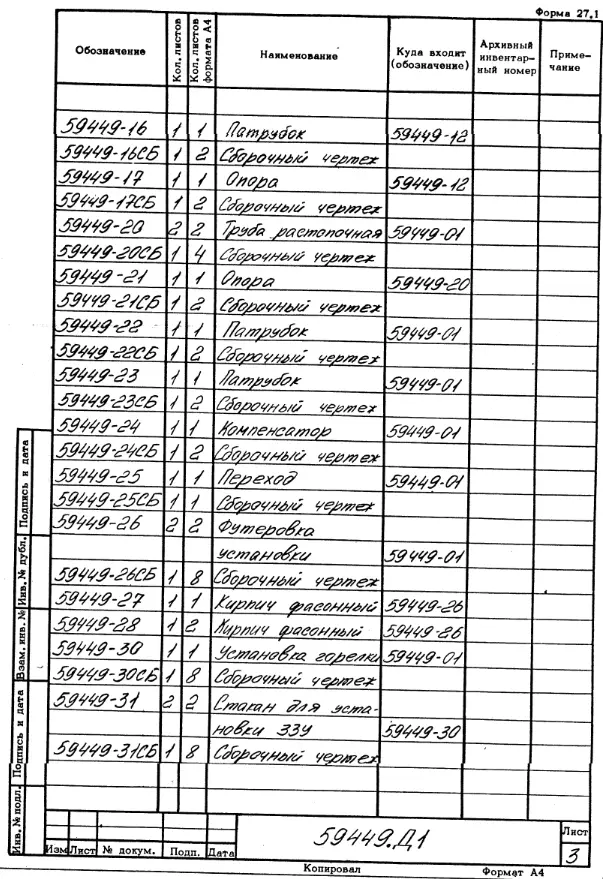 Форма 27,1
Обозначение Кол. листов Кол. листов формата А4 Наименование Куда входит (обозначение) Архивный инвентар-ный номер Приме-чание
59449-16 1 1 Патрубок 59449-12
59449-16СБ 1 2 Сборочный чертеж
59449-17 1 1 Опора 59449-12
59449-17СБ 1 2 Сборочный чертеж
59449-20 2 2 Труба растопочная 59449-01
59449-20СБ 1 4 Сборочный чертеж
59449-21 1 1 Опора 59449-20
59449-21СБ 1 2 Сборочный чертеж
59449-22 1 1 Патрубок 59449-01
59449-22СБ 1 2 Сборочный чертеж
59449-23 1 1 Патрубок 59449-01
59449-23СБ 1 2 Сборочный чертеж
59449-24 1 1 Компенсатор 59449-01
59449-24СБ 1 2 Сборочный чертеж
59449-25 1 1 Переход 59449-01
59449-25СБ 1 1 Сборочный чертеж
59449-26 2 2 Футеровка
установки 59449-01
59449-26СБ 1 8 Сборочный чертеж
59449-27 1 1 Кирпич фасонный 59449-26
59449-28 1 2 Кирпич фасонный 59449-26
59449-30 1 1 Установка горелки 59449-01
59449-30СБ 1 8 Сборочный чертеж
59449-31 2 2 Стакан для уста-
новки ЗЗУ 59449-30
59449-31СБ 1 8 Сборочный чертеж
Инв. № подл. Подпись и дата Взам. инв. № Инв. № дубл. Подпись и дата
Изм Лист № докум. Подп. Дата
59449.Д1
Лист
3
Копировал Формат А4